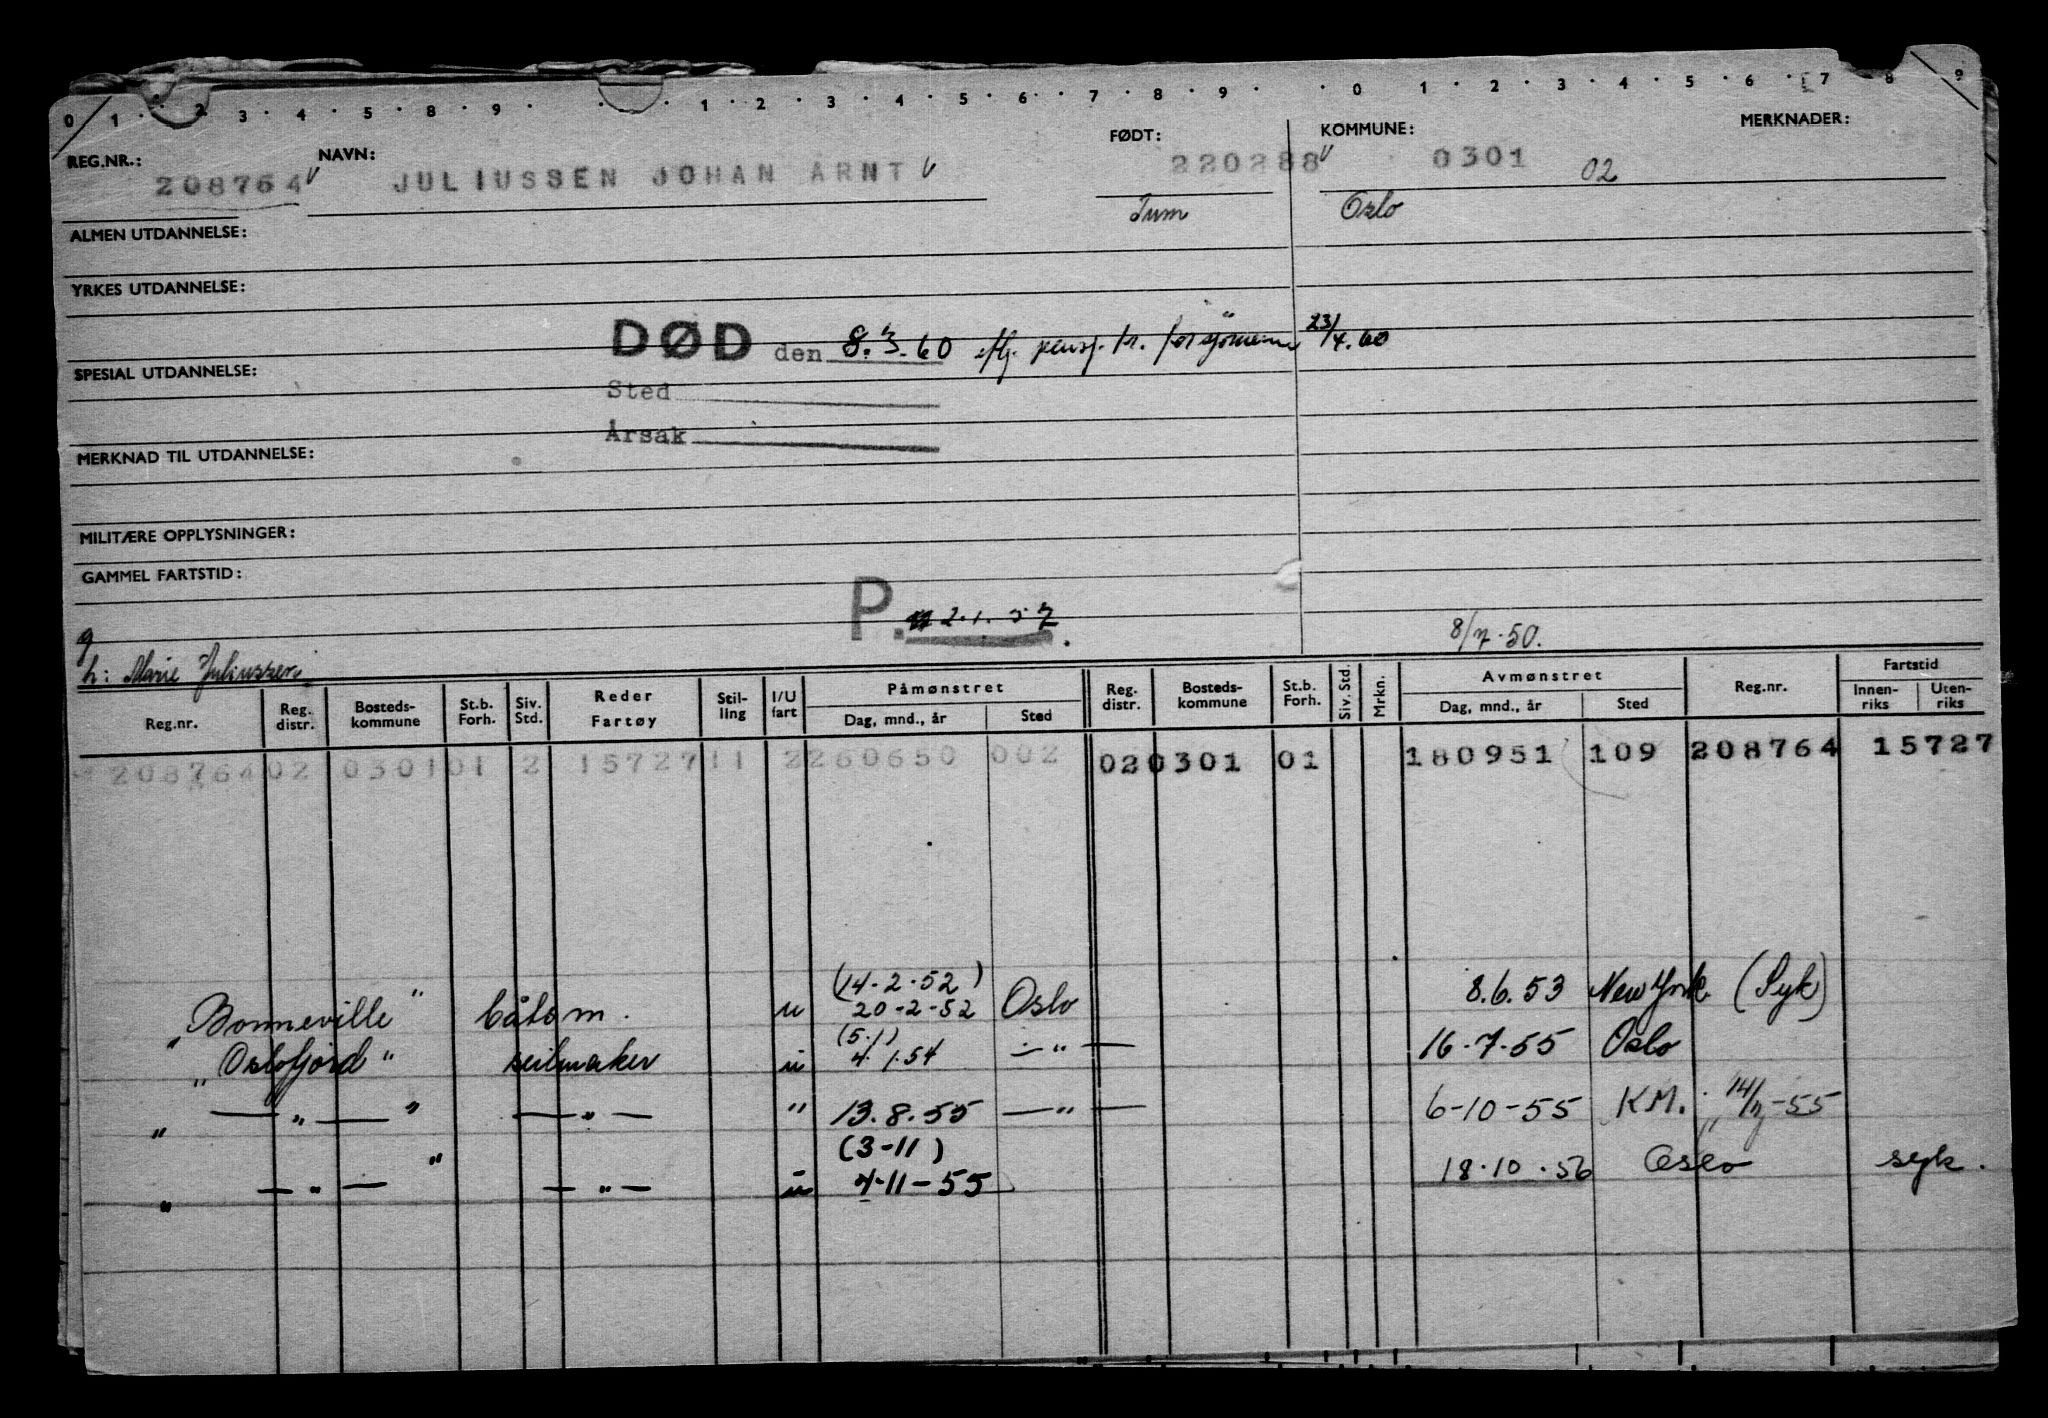 0 1 · 2 · 3 · 4 · 5 · 8 · 9 · · · 1 · 2 · 3 · 4 · 5 · 6 · 7 · 8 · 9 · · 0 · 1 · 2 · 3 · 4 · 5 · 6 · 7 8 9
REG.NR.: NAVN: FØDT: KOMMUNE: MERKNADER:
208764 JULIUSSEN JOHAN ARNT 220288 0301 02
Tum Oslo
ALMEN UTDANNELSE:
YRKES UTDANNELSE:
DØD den 8.3.60 eflg. pensj. tr. for sjömenn 23/4.60
SPESIAL UTDANNELSE:
Sted
Årsak
MERKNAD TIL UTDANNELSE:
MILITÆRE OPPLYSNINGER:
GAMMEL FARTSTID:
P. 2.1.57.
g 8/7.50.
h: Marie Juliussen
Reg.nr. Reg. distr. Bosteds-kommune St.b. Forh. Siv. Std. Reder Fartøy Stil-ling I/U fart Påmønstret Dag, mnd., år Sted Reg. distr. Bosteds-kommune St.b. Forh. Siv. Std. Mrkn. Avmønstret Dag, mnd., år Sted Reg.nr. Fartstid Innen-riks Uten-riks
208764 02 0301 01 2 15727 11 2 260650 002 02 0301 01 180951 109 208764 15727
(14-2-52)
„Bonneville" båtsm. u 20-2-52 Oslo 8.6.53 New York (Syk)
(5.1)
„Oslofjord" seilmaker u 4.1.54 —"— 16-7-55 Oslo
„ —"— " —"— " 13.8.55 —"— 6-10-55 KM. 14/7-55
(3-11)
„ —"— " —"— u 4-11-55 18.10.56 Oslo syk.